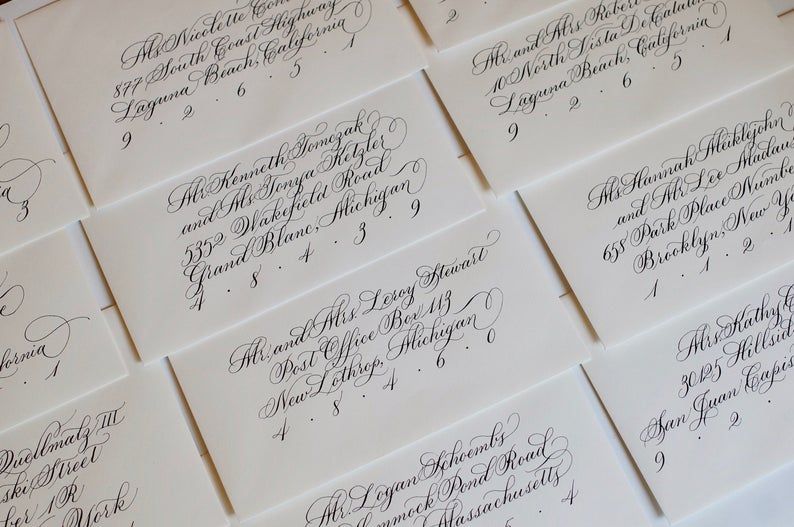 Ms Nicolette
877 South Coast Highway
Laguna Beach, California
9 · 2 · 6 · 5 · 1
2
Mr. and Mrs. Robert
10 North Vista De Catalina
Laguna Beach, California
9 · 2 · 6 · 5 · 1
3
Mr. Kenneth Tomczak
and Ms Tonya Hetzler
5352 Wakefield Road
Grand Blanc, Michigan
4 · 8 · 4 · 3 · 9
Ms Hannah Meiklejohn
and Mr. Lee Madau
658 Park Place Number
Brooklyn, New Yo
1 · 1 · 2 · 1
ifornia
· 1
Mr. and Mrs. Leroy Stewart
Post Office Box 113
New Lothrop, Michigan
4 · 8 · 4 · 6 · 0
Mrs. Kathy
30125 Hillsid
San Juan Capis
9 · 2 ·
Quellmalz III
ski Street
ber 1R
York
Mr. Logan Schoembs
mmock Pond Road
Massachusetts
4